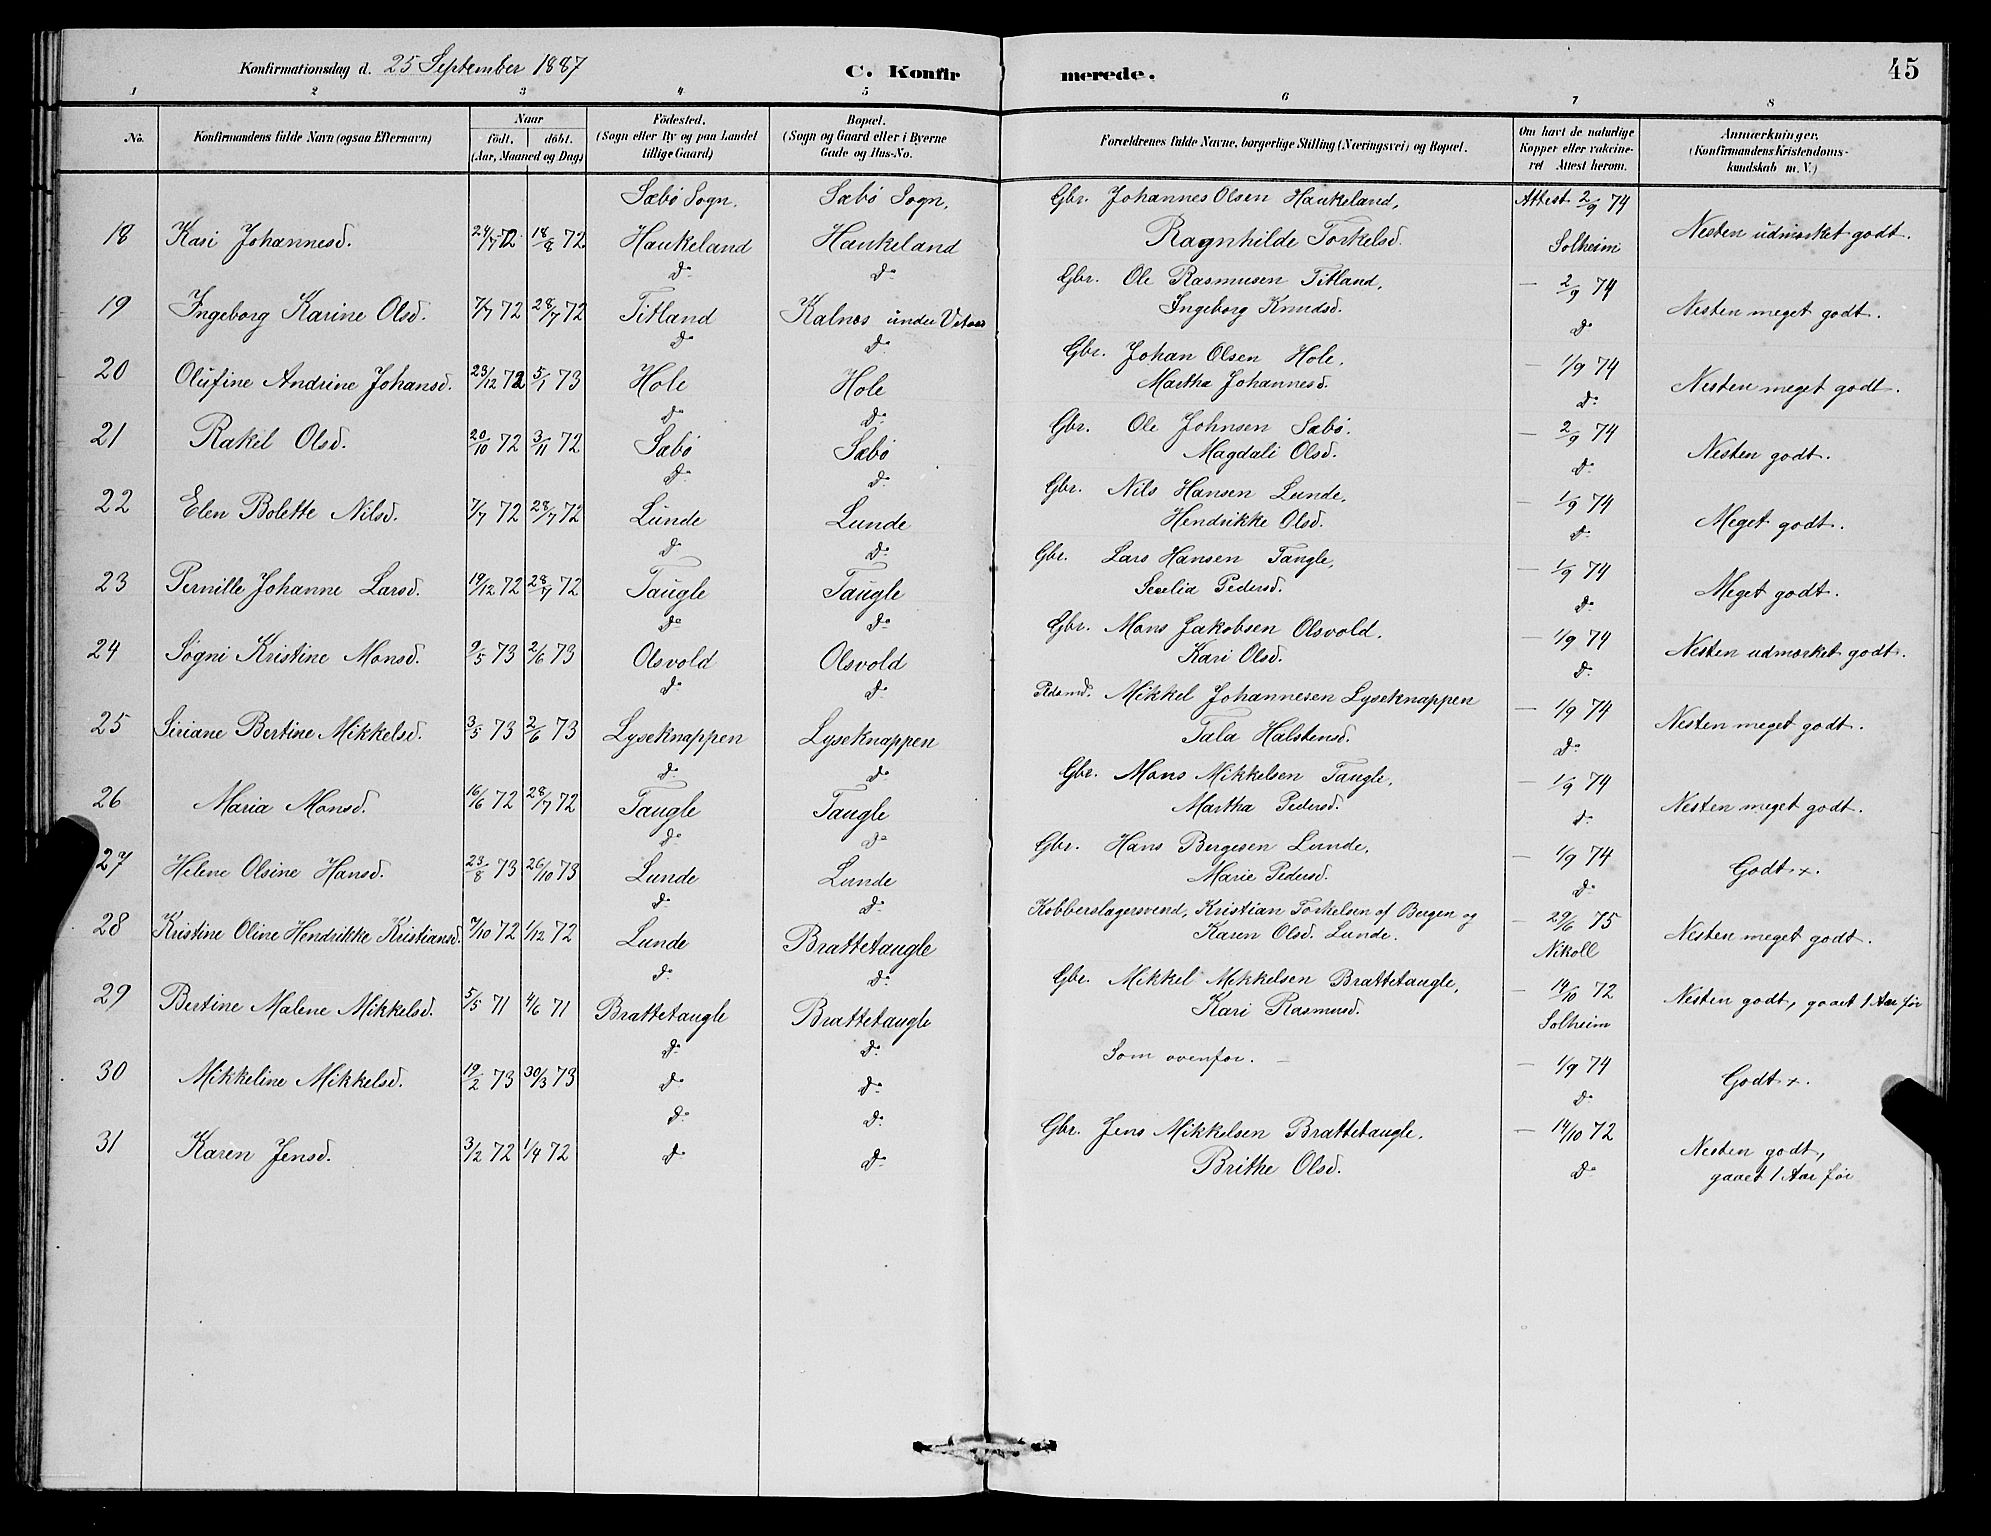 Konfirmationsdag d. 25 September 1887 C. Konfirmerede. 45
1 2 3 4 5 6 7 8
No. Konfirmandens fulde Navn (ogsaa Efternavn) Naar født, døbt. (Aar, Maaned og Dag) Fødested. (Sogn eller By og paa Landet tillige Gaard) Bopæl. (Sogn og Gaard eller i Byerne Gade og Hus-No. Forældrenes fulde Navne, borgerlige Stilling (Næringsvei) og Bopæl. Om havt de naturlige Kopper eller vakcineret Attest herom. Anmærkninger. (Konfirmandens Kristendomskundskab m. V.)
Sæbø Sogn. Sæbø Sogn. Gbr. Johannes Olsen Haukeland, Attest 2/9 74
18 Kari Johannesd. 24/7 72 18/8 72 Haukeland Haukeland Ragnhilde Torkelsd. Solheim Nesten udmærket godt.
do do Gbr. Ole Rasmusen Titland, — 2/9 74
19 Ingeborg Karine Olsd. 7/7 72 28/7 72 Titland Kalnes under Ingeborg Knudsd. do Nesten meget godt.
do do Gbr. Johan Olsen Hole, — 1/9 74
20 Olufine Andrine Johansd. 23/12 72 5/1 73 Hole Hole Martha Johannesd. do Nesten meget godt.
do do Gbr. Ole Johnsen Sæbø. — 2/9 74
21 Rakel Olsd. 20/10 72 3/11 72 Sæbø Sæbø Magdali Olsd. do Nesten godt.
do do Gbr. Nils Hansen Lunde, — 1/9 74
22 Elen Bolette Nilsd. 7/7 72 28/7 72 Lunde Lunde Hendrikke Olsd. do Meget godt.
do do Gbr. Lars Hansen Taugle, — 1/9 74
23 Pernille Johanne Larsd. 19/12 72 28/7 72 Taugle Taugle Secelia Pedersd. do Meget godt.
do do Gbr. Mons Jakobsen Olsvold. — 1/9 74
24 Søgni Kristine Monsd. 9/5 73 2/6 73 Olsvold Olsvold Kari Olsd. do Nesten udmærket godt.
do do Pldsmd. Mikkel Johannesen Lyseknappen — 1/9 74
25 Siriane Bertine Mikkelsd. 3/5 73 2/6 73 Lyseknappen Lyseknappen Tala Halstensd. do Nesten meget godt.
do do Gbr. Mons Mikkelsen Taugle, — 1/9 74
26 Maria Monsd. 16/6 72 28/7 72 Taugle Taugle Martha Pedersd. do Nesten meget godt.
do do Gbr. Hans Bergesen Lunde, — 1/9 74
27 Helene Olsine Hansd. 23/8 73 26/10 73 Lunde Lunde Marie Pedersd. do Godt +.
do do Kobberslagersvend, Kristian Torkelsen af Bergen og — 29/6 75
28 Kristine Oline Hendrikke Kristiansd. 7/10 72 1/12 72 Lunde Brattetaugle Karen Olsd. Lunde. Nikoll Nesten meget godt.
do do Gbr. Mikkel Mikkelsen Brattetaugle, — 14/10 72
29 Bertine Malene Mikkelsd. 5/5 71 4/6 71 Brattetaugle Brattetaugle Kari Rasmusd. Solheim Nesten godt, gaaet 1 Aar før
do do Som ovenfor. — — 1/9 74
30 Mikkeline Mikkelsd. 19/2 73 30/3 73 do do do Godt +.
do do Gbr. Jens Mikkelsen Brattetaugle. — 14/10 72
31 Karen Jensd. 3/2 72 1/4 72 do do Brithe Olsd. do Nesten godt,
gaaet 1 Aar før